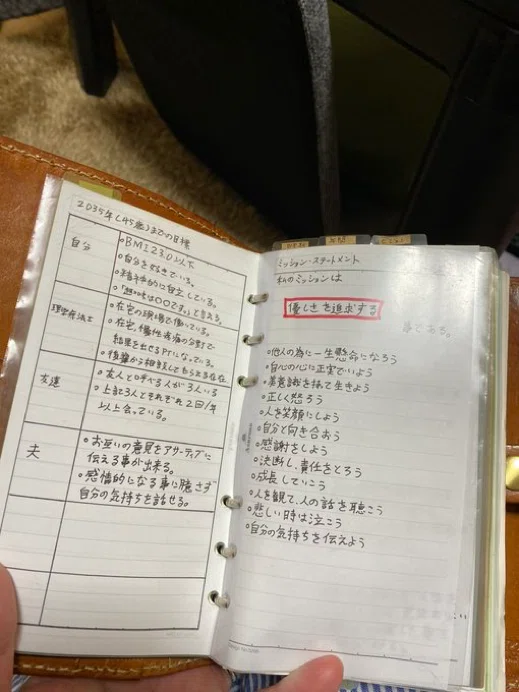 2035年(45歳)までの目標
自分
・BMI23.0以下
・自分を好きでいる。
・精神的に自立している。
・「趣味は〇〇です」と言える。
理学療法士
・在宅の現場で働いている。
・在宅、慢性疾病の分野で
結果を出せるPTになっている。
・後輩から相談してもらえる存在
友達
・友人と呼べる人が3人いる
・上記3人とそれぞれ2回/年
以上会っている。
夫
・お互いの意見をアサーティブに
伝える事が出来る。
・感情的になる事に臆さず
自分の気持ちを話せる。
ミッション・ステートメント
私のミッションは
優しさを追求する
事である。
・他人の為に一生懸命になろう
・自分の心に正実でいよう
・美意識を持って生きよう
・正しく怒ろう
・人を笑顔にしよう
・自分と向き合おう
・感謝をしよう
・決断し、責任をとろう
・成長していこう
・人を観て、人の話を聴こう
・悲しい時は泣こう
・自分の気持ちを伝えよう